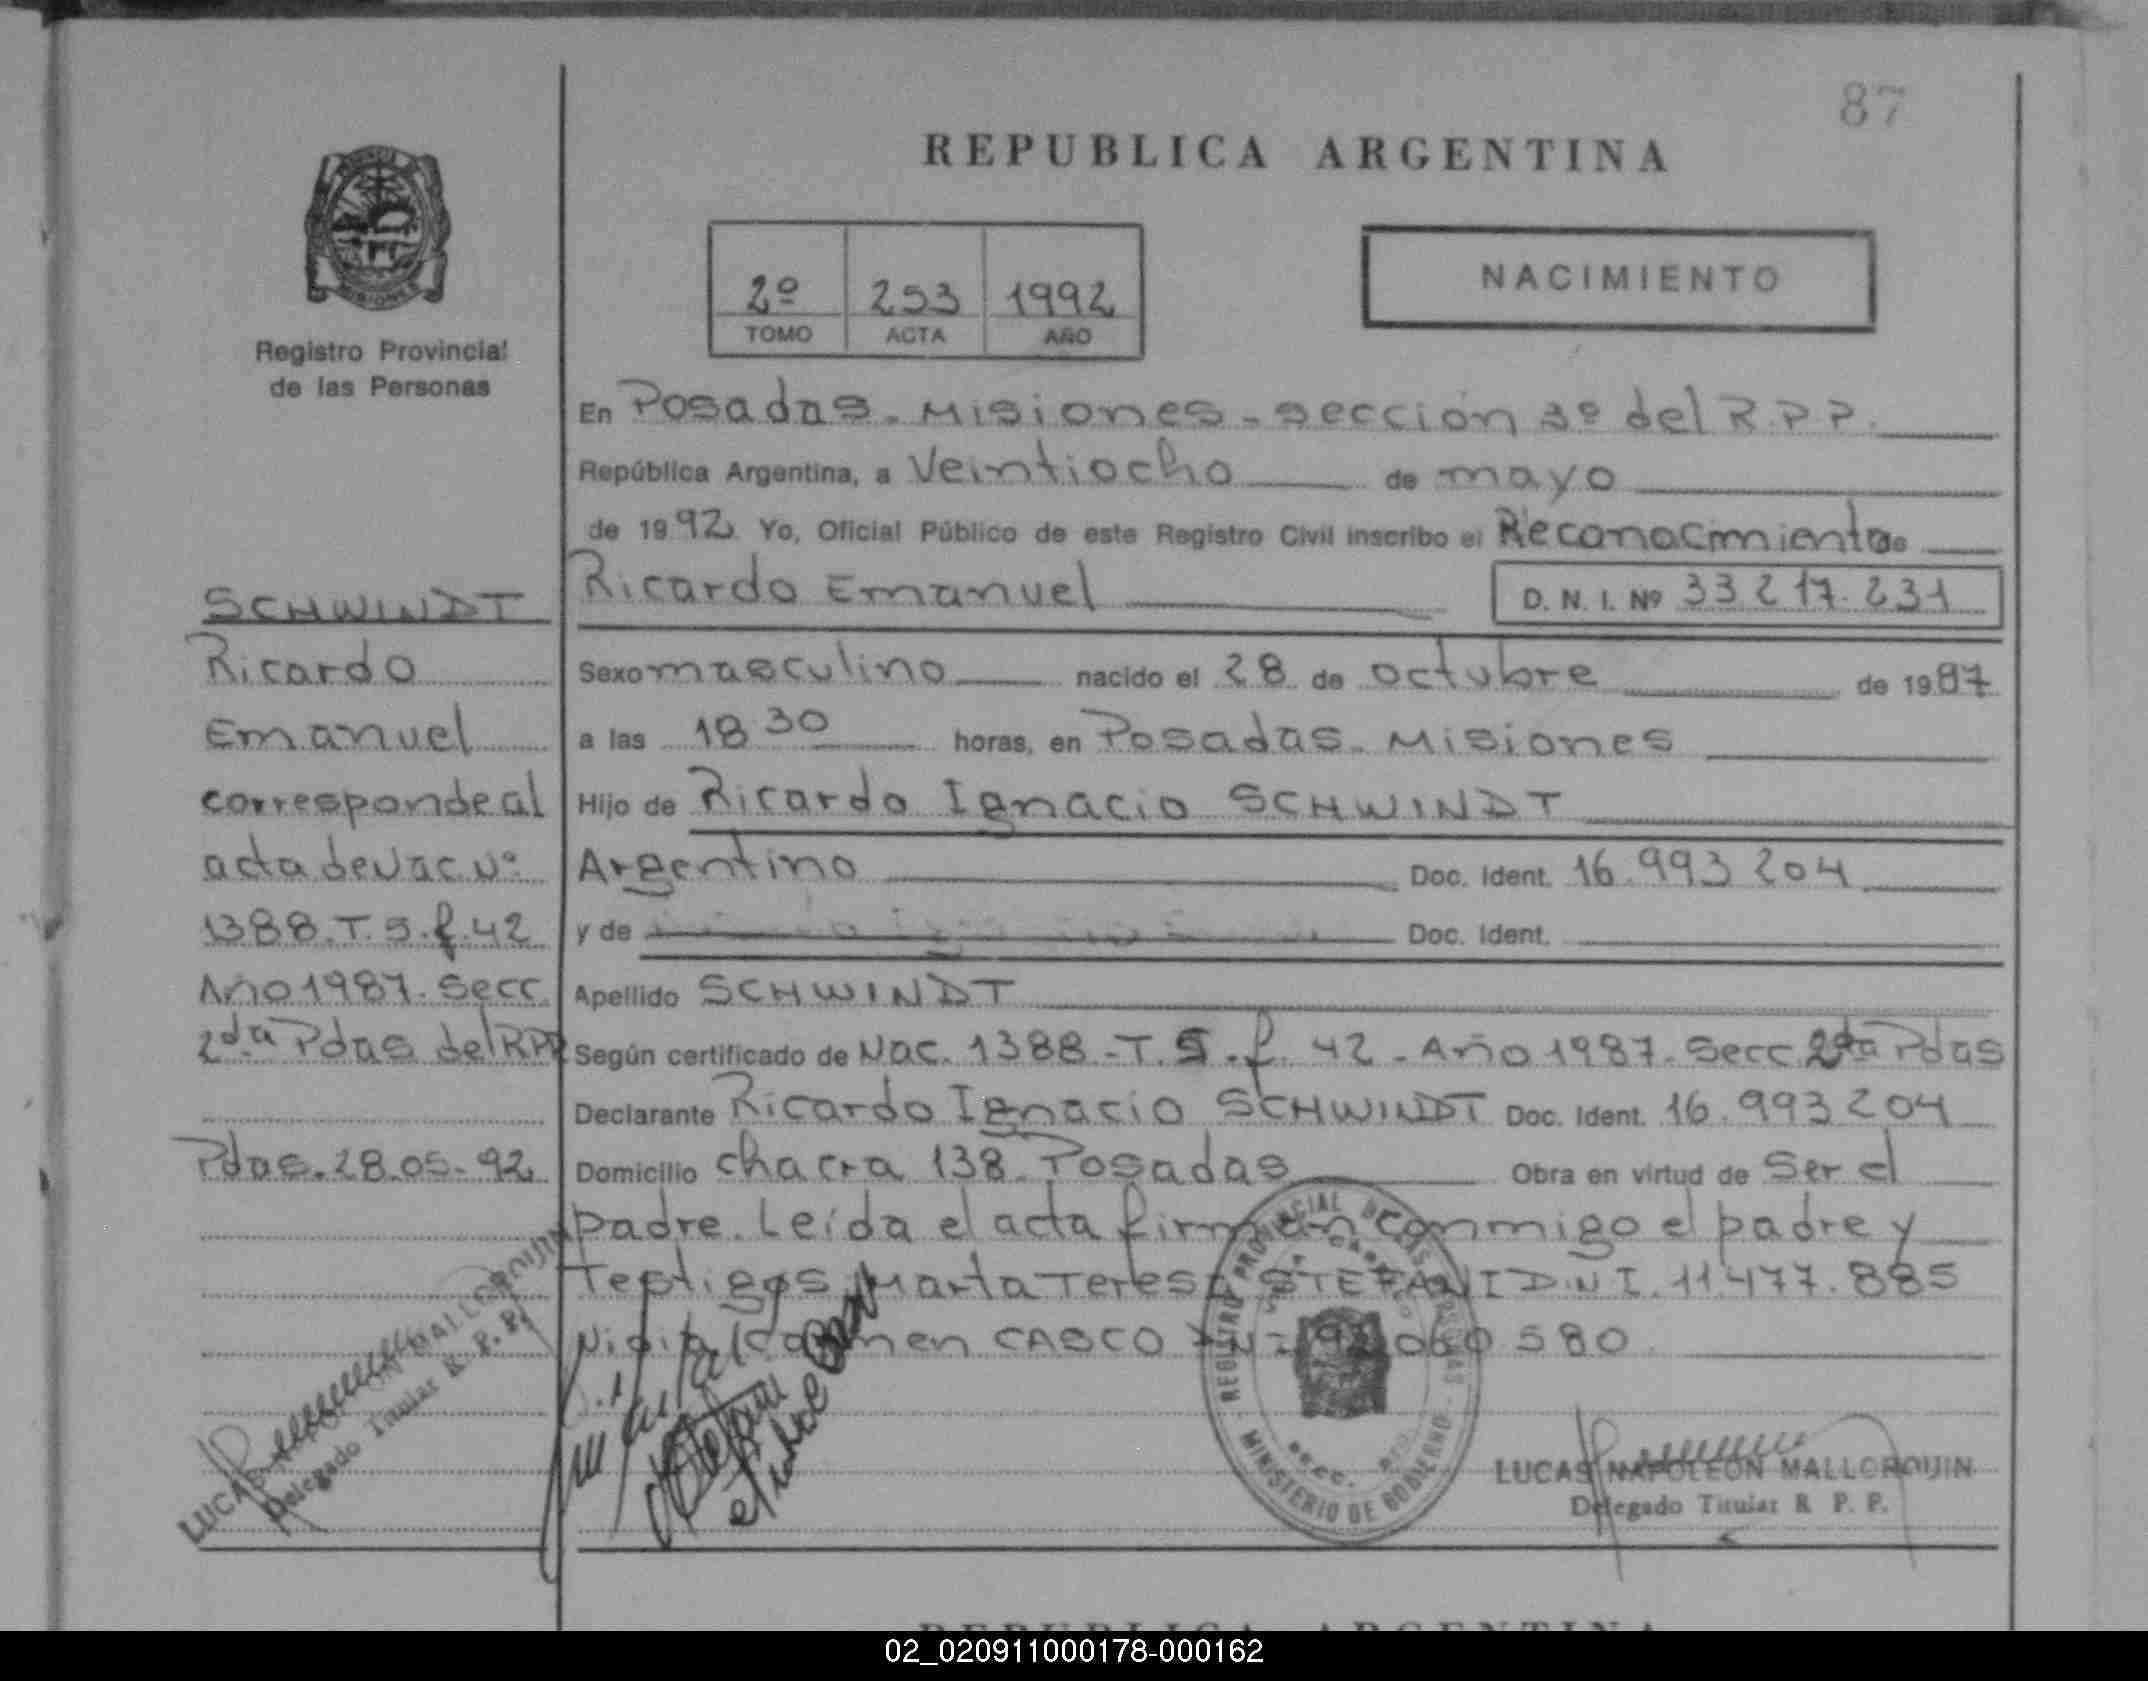 87
REPUBLICA ARGENTINA
2º 253 1992
TOMO ACTA AÑO
NACIMIENTO
Registro Provincial
de las Personas
En Posadas. Misiones - sección 3º del R.P.P.
República Argentina, a Veintiocho de mayo
de 1992 Yo, Oficial Público de este Registro Civil inscribo el Reconocimiento de
Ricardo Emanuel D. N. I. Nº 33 217.231
Sexo masculino nacido el 28 de octubre de 1987
a las 18 30 horas, en Posadas. Misiones
Hijo de Ricardo Ignacio SCHWINDT
Argentino Doc. Ident. 16.993 204
y de Doc. Ident.
Apellido SCHWINDT
Según certificado de Nac. 1388-T.5.f. 42-Año 1987. Secc 2da Pdas
Declarante Ricardo Ignacio SCHWINDT Doc. Ident. 16.993 204
Domicilio chacra 138. Posadas Obra en virtud de Ser el
padre. Leída el acta firman conmigo el padre y
Testigos Marta Teresa STEFANI D.N.I. 11.477.885
Carmen CASCO 580
SCHWINDT
Ricardo
Emanuel
corresponde al
acta de Nac Nº
1388.T.5.f.42
Año 1987. Secc
2da Pdas del RPP
Pdas. 28.05-92
LUCAS NAPOLEON MALLORQUIN
Delegado Titular R. P. P.
REGISTRO PROVINCIAL DE LAS PERSONAS
MINISTERIO DE GOBIERNO
LUCAS NAPOLEON MALLORQUIN
Delegado Titular R P. P.
REPUBLICA ARGENTINA
02_020911000178-000162